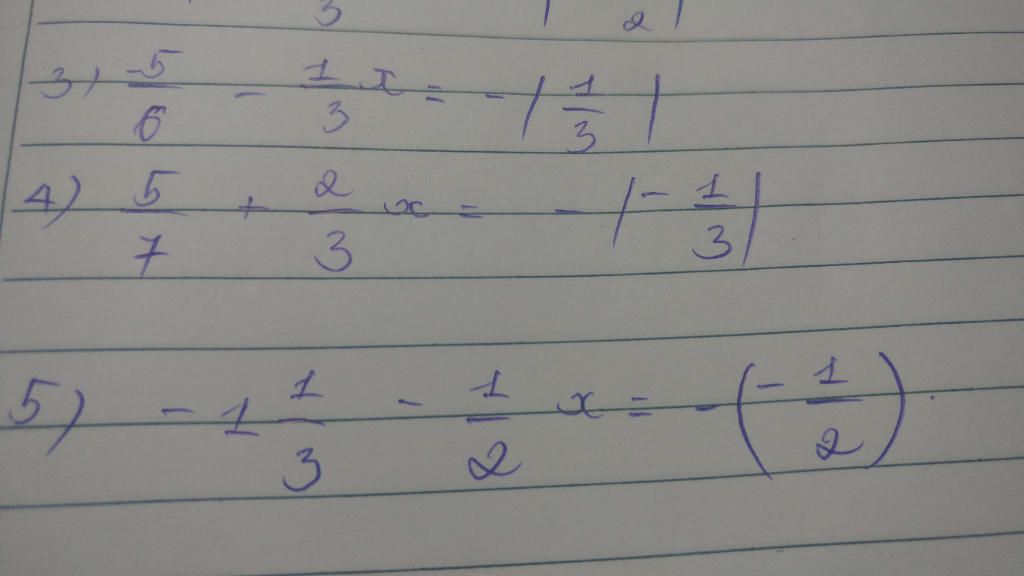 3 | 2 |
3) -5/6 - 1/3 x = - | 1/3 |
4) 5/7 + 2/3 x = - | - 1/3 |
5) - 1 1/3 - 1/2 x = - ( - 1/2 ) .